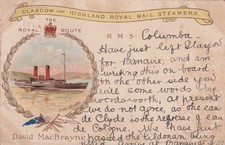 GLASGOW AND HIGHLAND ROYAL MAIL STEAMERS
THE
ROYAL ROUTE
R·M·S· Columba
Have just left Glasgow
for Banavie, and am
writing this on board.
On the other side you
will some words by
Wordsworth, at present
we do not agree, as the
Clyde is the reverse of
de Cologne. We have just
passed the Kildonan
David MacBrayne